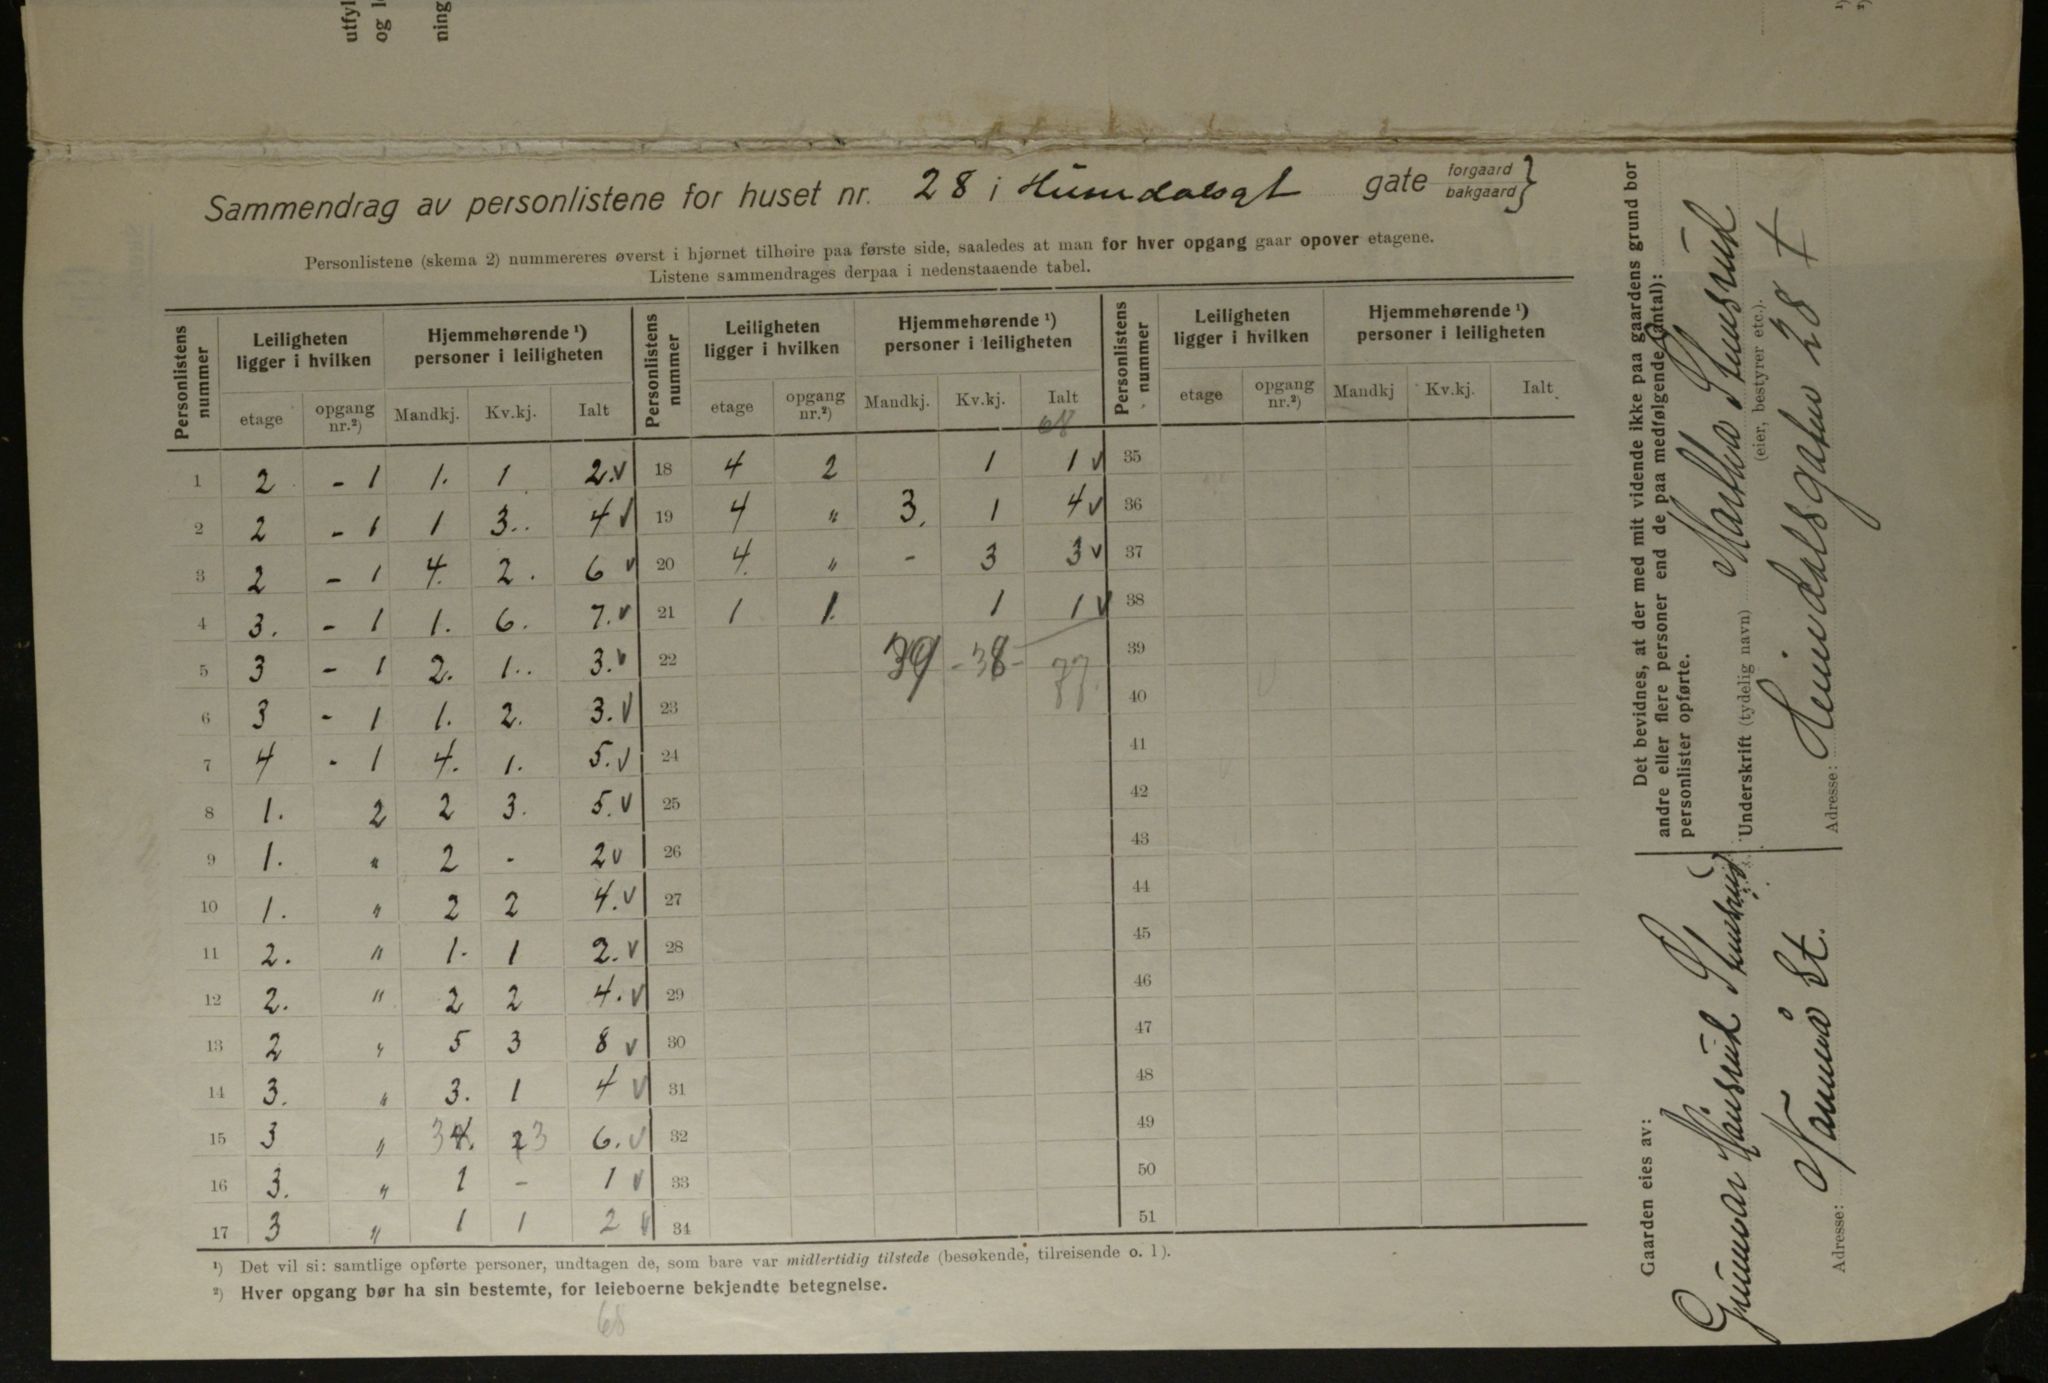 utfyl
og l
ning
¹)
²)
Sammendrag av personlistene for huset nr. 28 i Heimdalsgt gate forgaard bakgaard }
Personlistene (skema 2) nummereres øverst i hjørnet tilhøire paa første side, saaledes at man for hver opgang gaar opover etagene.
Listene sammendrages derpaa i nedenstaaende tabel.
Personlistens nummer | Leiligheten ligger i hvilken | Hjemmehørende ¹) personer i leiligheten | Personlistens nummer | Leiligheten ligger i hvilken | Hjemmehørende ¹) personer i leiligheten | Personlistens nummer | Leiligheten ligger i hvilken | Hjemmehørende ¹) personer i leiligheten
etage | opgang nr.²) | Mandkj. | Kv.kj. | Ialt | etage | opgang nr.²) | Mandkj. | Kv.kj. | Ialt | etage | opgang nr.²) | Mandkj | Kv.kj. | Ialt.
68
1 2 - 1 1. 1 2. v 18 4 2 1 1 v 35
2 2 - 1 1 3.. 4 v 19 4 " 3. 1 4 v 36
3 2 - 1 4. 2. 6 v 20 4. " - 3 3 v 37
4 3. - 1 1. 6. 7. v 21 1 1. 1 1 v 38
5 3 - 1 2. 1.. 3. v 22 39 - 38 - 77. 39
6 3 - 1 1. 2. 3. v 23 40
7 4 - 1 4. 1. 5. v 24 41
8 1. 2 2 3. 5. v 25 42
9 1. " 2 - 2 v 26 43
10 1. " 2 2 4. v 27 44
11 2. " 1. 1 2. v 28 45
12 2. " 2 2 4. v 29 46
13 2 " 5 3 8 v 30 47
14 3. " 3. 1 4 v 31 48
15 3 " 3 4. 2 3 6. v 32 49
16 3. " 1 - 1 v 33 50
17 3 " 1 1 2 v 34 51
¹) Det vil si: samtlige opførte personer, undtagen de, som bare var midlertidig tilstede (besøkende, tilreisende o. l).
²) Hver opgang bør ha sin bestemte, for leieboerne bekjendte betegnelse.
68
Det bevidnes, at der med mit vidende ikke paa gaardens grund bor
andre eller flere personer end de paa medfølgende (antal):
personlister opførte.
Underskrift (tydelig navn) Martha Stensrud
(eier, bestyrer etc.).
Adresse: Heimdalsgaten 28 I
Gaarden eies av:
Gunnar Stensrud
Adresse: St.